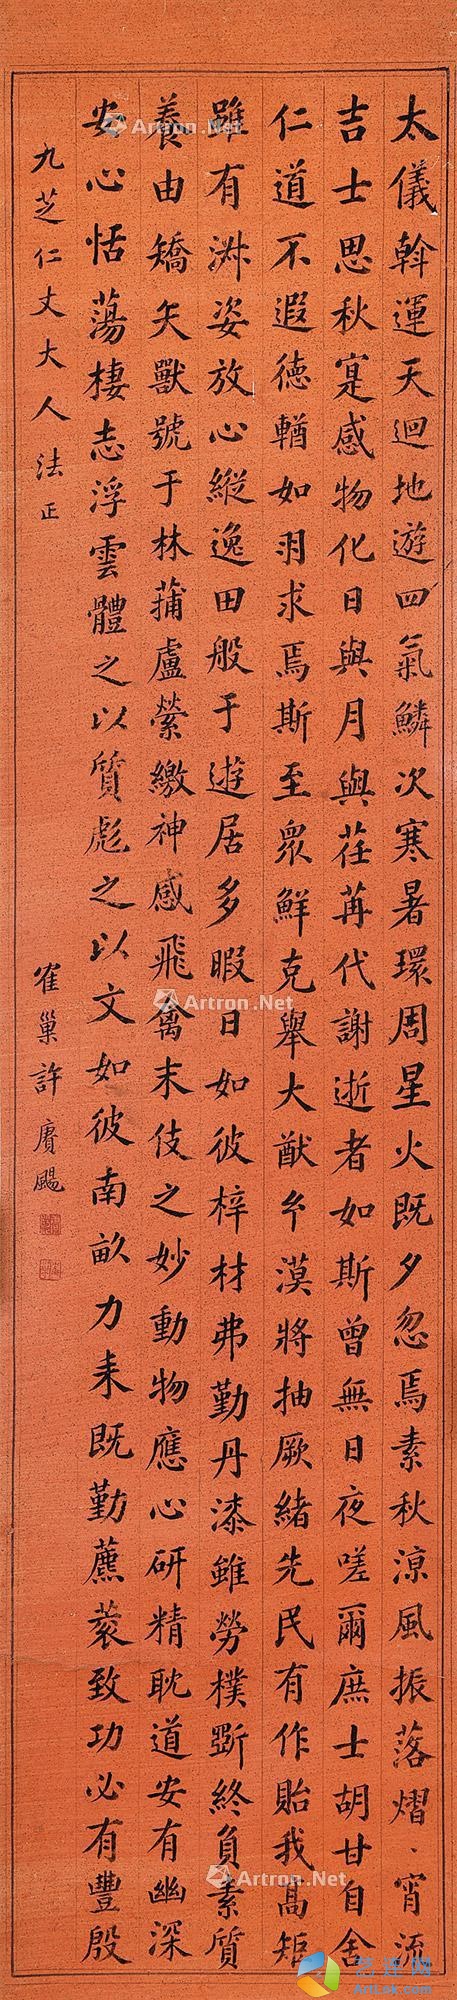 太儀斡運天迴地遊四氣鱗次寒暑環周星火既夕忽焉素秋涼風振落熠、宵流
吉士思秋寔感物化日與月與荏苒代謝逝者如斯曾無日夜嗟爾庶士胡甘自舍
仁道不遐德輶如羽求焉斯至眾鮮克舉大猷玄漠將抽厥緒先民有作貽我高矩
雖有淑姿放心縱逸田般于遊居多暇日如彼梓材弗勤丹漆雖勞樸斲終負素質
養由矯矢獸號于林蒱盧縈繳神感飛禽末伎之妙動物應心研精耽道安有幽深
安心恬蕩棲志浮雲體之以質彪之以文如彼南畝力耒既勤藨蔉致功必有豐殷
九芝仁丈大人法正
隺巢許賡颺
Artron.Net
Artron.Net
Artron.Net
Artron.Net
Artron.Net
Artron.Net